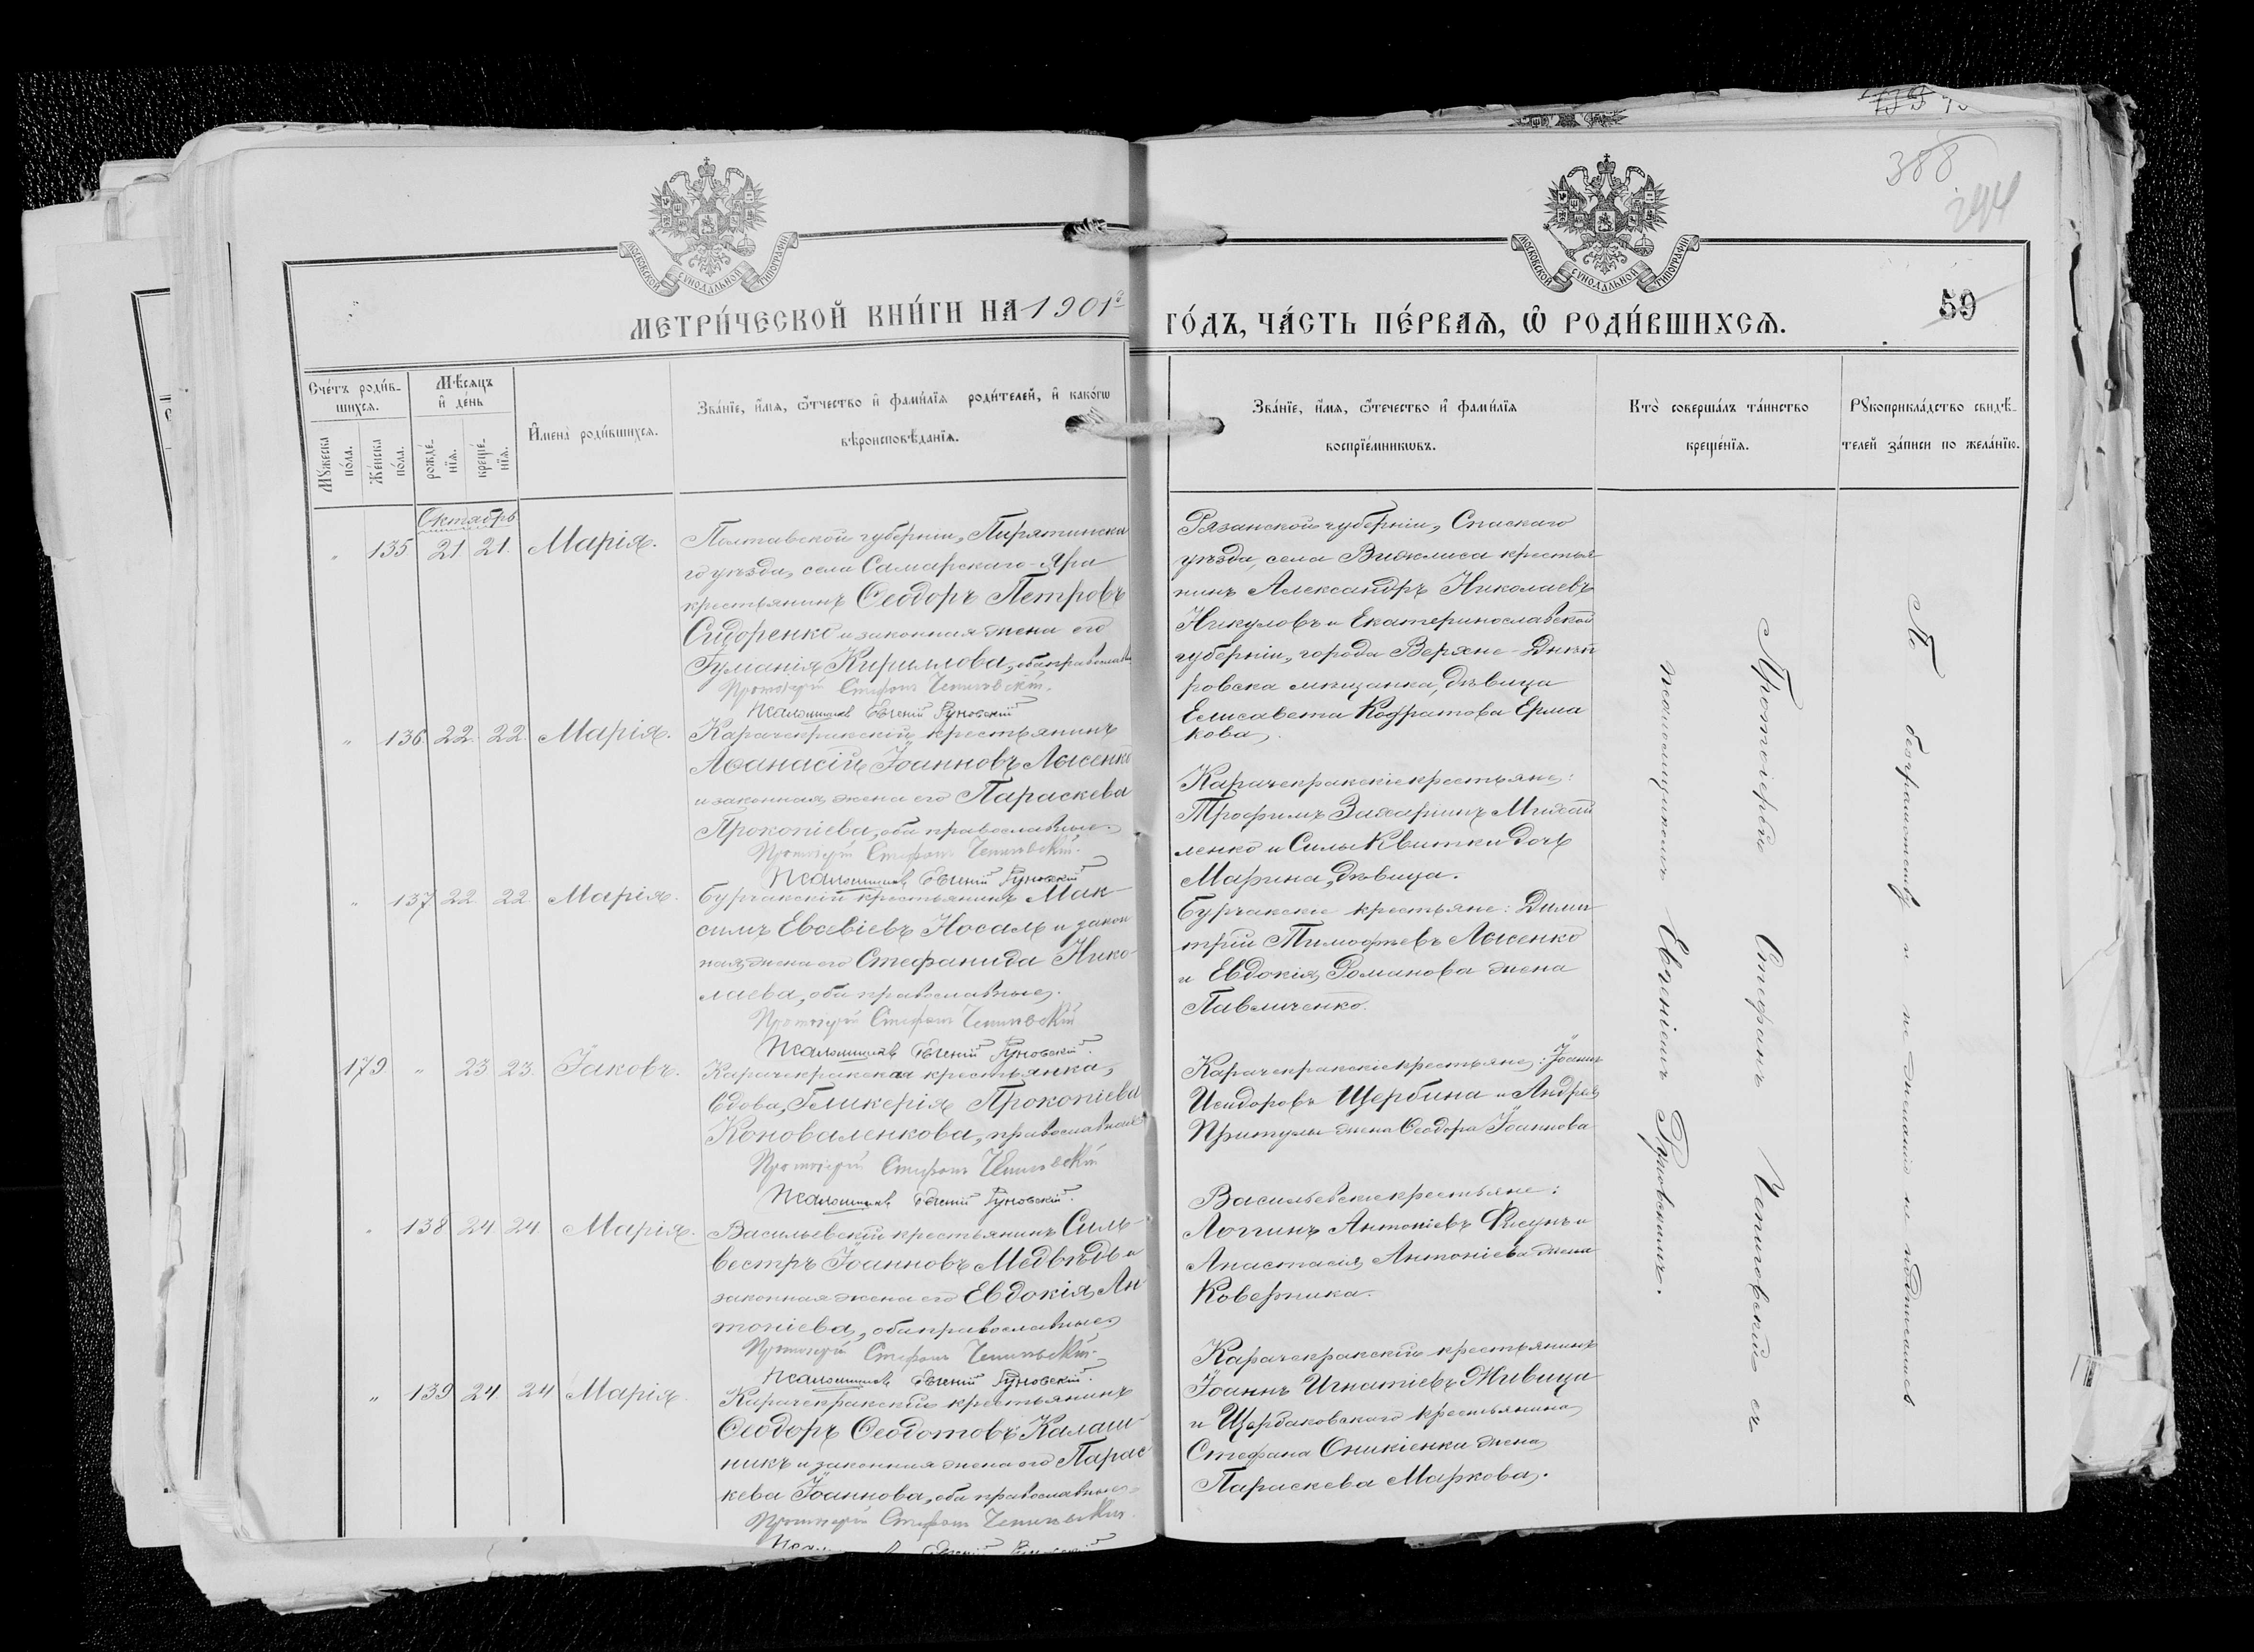 139
388
294
МОСКОВСКОЙ СѴНОДАЛЬНОЙ ТИПОГРАФІИ
МОСКОВСКОЙ СѴНОДАЛЬНОЙ ТИПОГРАФІИ
МЕТРИ́ЧЕСКОЙ КНИ́ГИ НА 1901й
ГО́ДЪ, ЧА́СТЬ ПЕ́РВАѦ, Ѡ РОДИ́ВШИХСѦ.
59
Сче́тъ роди́в-
шихсѧ.
Мѣ́сѧцъ
и҆ де́нь
Мꙋ́жеска
по́ла.
Же́нска
по́ла.
рожде́-
нїѧ.
креще́-
нїѧ.
И҆мена̀ роди́вшихсѧ.
Зва́нїе, и҆́мѧ, ѻ҆́тчество и҆ фами́лїѧ роди́телей, и҆ како́гѡ
вѣроисповѣ́данїѧ.
Зва́нїе, и҆́мѧ, ѻ҆те́чество и҆ фами́лїѧ
воспрїе́мникѡвъ.
Кто̀ соверша́лъ та́инство
креще́нїѧ.
Рꙋкоприкла́дство свидѣ́-
телей за́писи по жела́нїю.
Октябрь
" 135 21 21. Марія.
Полтавской губерніи, Пирятинска
го уѣзда, села Самарскаго-Яра
крестьянинъ Ѳеодоръ Петровъ
Сидоренко и законная жена его
Гуманія Кириллова, оба православн
Протоіерей Стефанъ Чепиговскій.
Псаломщикъ Евгеній Руновскій
Рязанской губерніи, Спаскаго
уѣзда, села Вижлиса крестья
нинъ Александръ Николаевъ
Никуловъ и Екатеринославской
губерніи, города Верхне-Днѣп
ровска мѣщанка, дѣвица
Елисавета Кодратова Ерма
кова.
" 136 22. 22. Марія.
Карачекракскій крестьянинъ
Аѳанасій Іоанновъ Лысенко
и законная жена его Параскева
Прокопіева, оба православные.
Протоіерей Стефанъ Чепиговскій.
Псаломщикъ Евгеній Руновскій
Карачекракскіе крестьяне:
Трофимъ Захаринъ Михай
ленко и Силы Квитки дочь
Марина, дѣвица.
" 137 22. 22. Марія.
Бурчакскій крестьянинъ Мак
симъ Евѳіевъ Носаль и закон
ная жена его Стефанида Нико
лаева, оба православные.
Протоіерей Стефанъ Чепиговскій
Псаломщикъ Евгеній Руновскій.
Бурчакские крестьяне: Дими
трій Тимофѣевъ Лысенко
и Евдокія Романова жена
Павличенко.
179 " 23 23. Іаковъ.
Карачекракская крестьянка,
вдова, Гликерія Прокопіева
Коноваленкова, православная
Протоіерей Стефанъ Чепиговскій
Псаломщикъ Евгеній Руновскій.
Карачекракскіе крестьяне: Іоаннъ
Исидоровъ Щербина и Андрея
Притулы жена Ѳеодора Іоаннова
" 138 24 24. Марія.
Васильевскій крестьянинъ Силь-
вестръ Іоанновъ Медвѣдь и
законная жена его Евдокія Ан
тоніева, оба православные
Протоіерей Стефанъ Чепиговскій.
Псаломщикъ Евгеній Руновскій.
Васильевские крестьяне:
Логгинъ Антоніевъ Фисунъ и
Анастасія Антоніева жена
Коверника.
" 139 24. 24 Марія.
Карачекракскій крестьянинъ
Ѳеодоръ Ѳеодотовъ Калаш-
никъ и законная жена его Парас
кева Іоаннова, оба православные
Протоіерей Стефанъ Чепиговскій.
Псаломщикъ Евгеній Руновскій
Карачекракскій крестьянинъ
Іоаннъ Игнатіевъ Живица
и Щербаковскаго крестьянина
Стефана Оникіенка жена
Параскева Маркова.
Протоіерей Стефанъ Чепиговскій съ
псаломщикомъ Евгеніемъ Руновскимъ.
безграмотству и не желанію не подписались